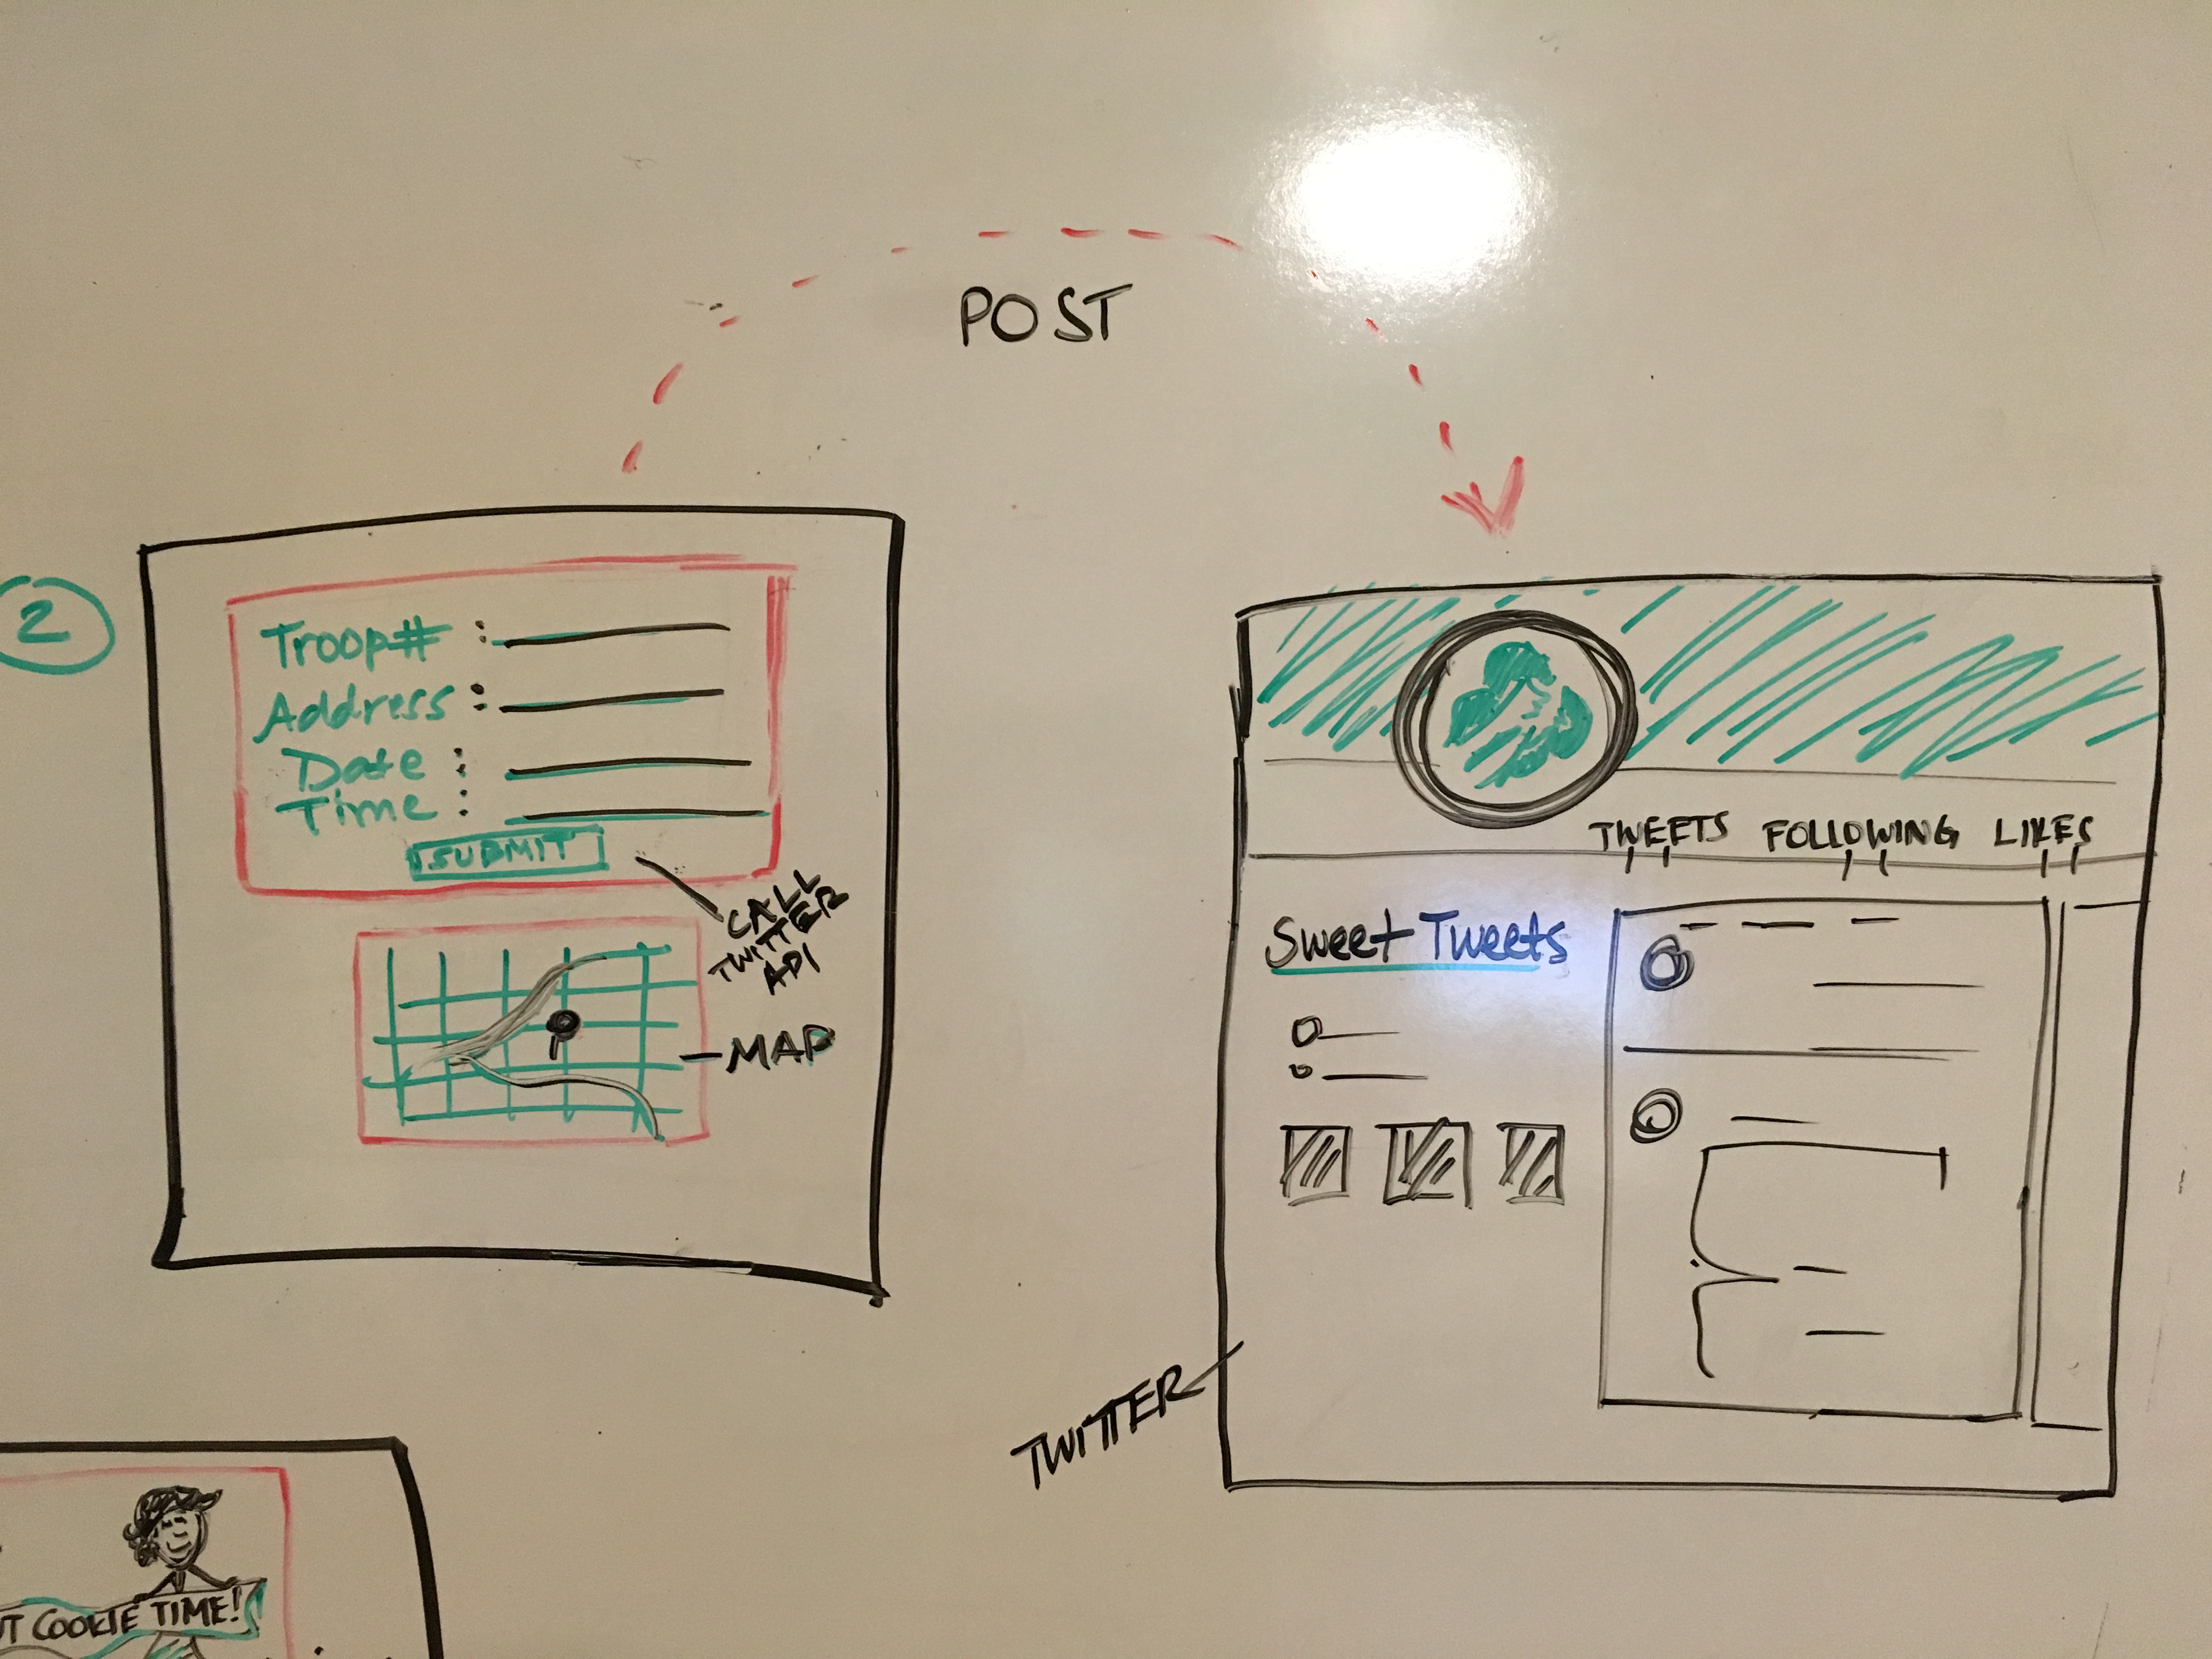 POST
2
Troop# :
Address :
Date :
Time :
SUBMIT
CALL
TWITTER
API
MAP
TWEETS FOLLOWING LIKES
Sweet Tweets
TWITTER
COOKIE TIME!